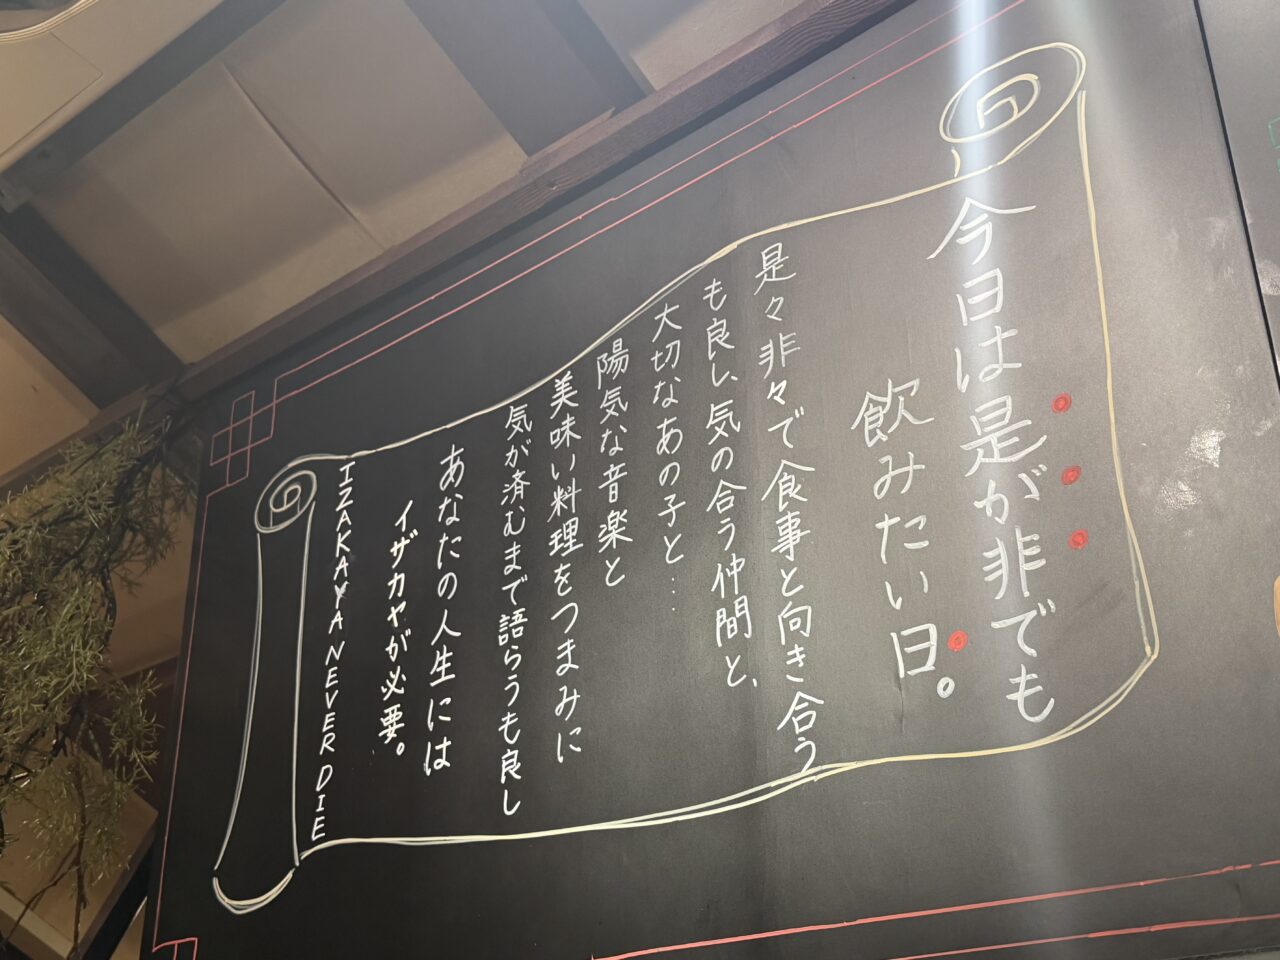 今日は是が非でも
飲みたい日。
是々非々で食事と向き合う
も良し、気の合う仲間と、
大切なあの子と…
陽気な音楽と
美味い料理をつまみに
気が済むまで語らうも良し
あなたの人生には
イザカヤが必要。
IZAKAYA NEVER DIE